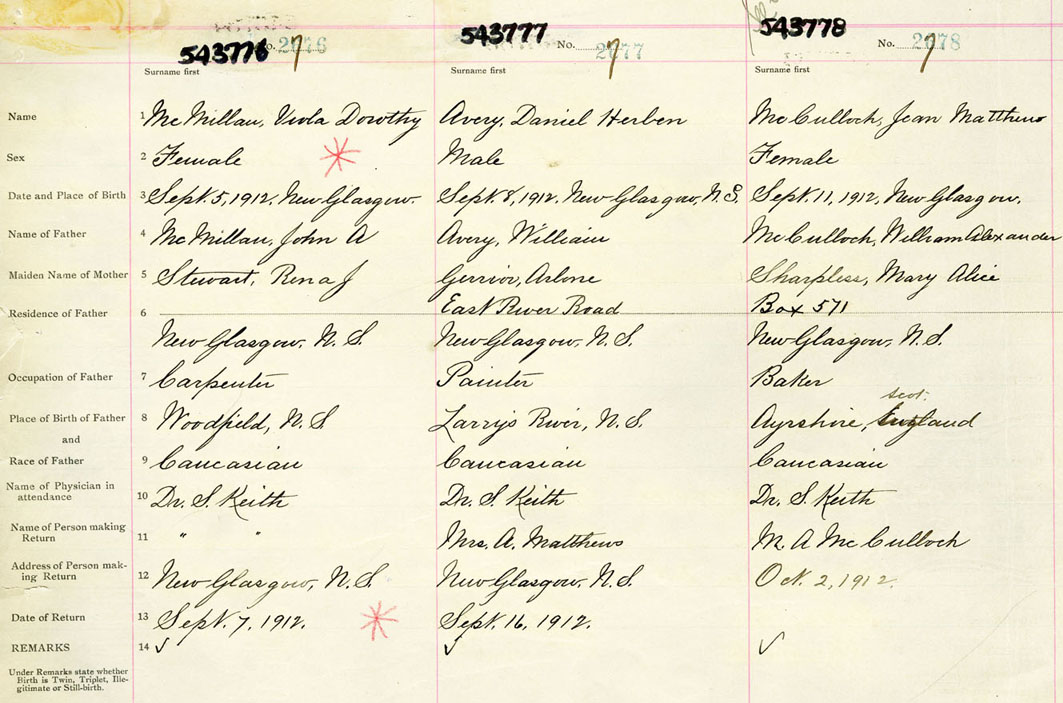 543776 No. 2676 7 543777 No. 2677 7 543778 No. 2678 7
Surname first Surname first Surname first
Name 1 McMillan, Viola Dorothy Avery, Daniel Herben McCulloch, Jean Matthews
Sex 2 Female Male Female
Date and Place of Birth 3 Sept. 5, 1912, New Glasgow. Sept. 8, 1912, New Glasgow, N.S. Sept. 11, 1912, New Glasgow.
Name of Father 4 McMillan, John A Avery, William McCulloch, William Alexander
Maiden Name of Mother 5 Stewart, Rena J Gerrior, Arlone Sharpless, Mary Alice
Residence of Father 6 East River Road Box 571
New Glasgow, N.S. New Glasgow, N.S. New Glasgow, N.S.
Occupation of Father 7 Carpenter Painter Baker
scot.
Place of Birth of Father 8 Woodfield, N.S Larrys River, N.S. Ayrshire, England
and
Race of Father 9 Caucasian Caucasian Caucasian
Name of Physician in
attendance 10 Dr. S. Keith Dr. S. Keith Dr. S. Keith
Name of Person making
Return 11 " " Mrs. A. Matthews M. A McCulloch
Address of Person mak-
ing Return 12 New Glasgow, N.S. New Glasgow, N.S. Oct. 2, 1912.
Date of Return 13 Sept. 7, 1912. Sept. 16, 1912.
REMARKS 14 ✓ ✓ ✓
Under Remarks state whether
Birth is Twin, Triplet, Ille-
gitimate or Still-birth.